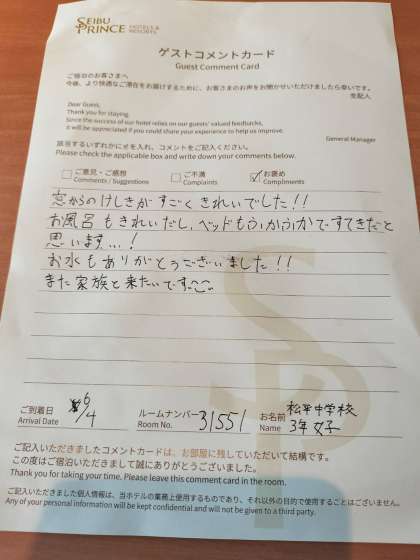 SEIBU
PRINCE HOTELS & RESORTS
ゲストコメントカード
Guest Comment Card
ご宿泊のお客さまへ
今後、より快適なご滞在をお届けするために、お客さまのお声をお聞かせいただけましたら幸いです。
支配人
Dear Guest,
Thank you for staying.
Since the success of our hotel relies on our guests' valued feedbacks,
it will be appreciated if you could share your experience to help us improve.
General Manager
該当するいずれかに✓を入れ、コメントをご記入ください。
Please check the applicable box and write down your comments below.
ご意見・ご感想 ご不満 お褒め
Comments / Suggestions Complaints Compliments
窓からのけしきがすごくきれいでした!!
お風呂もきれいだし、ベッドもふかふかですてきだと
思います...!
お水もありがとうございました!!
また家族と来たいです
ご到着日 6/4 ルームナンバー 31551 お名前 松平中学校
Arrival Date Room No. Name 3年女子
ご記入いただきましたコメントカードは、お部屋に残していただいて結構です。
この度はご宿泊いただきまして誠にありがとうございました。
Thank you for taking your time. Please leave this comment card in the room.
ご記入いただきました個人情報は、当ホテルの業務上使用するものであり、それ以外の目的で使用することはございません。
Any of your personal information will be kept confidential and will not be given to a third party.